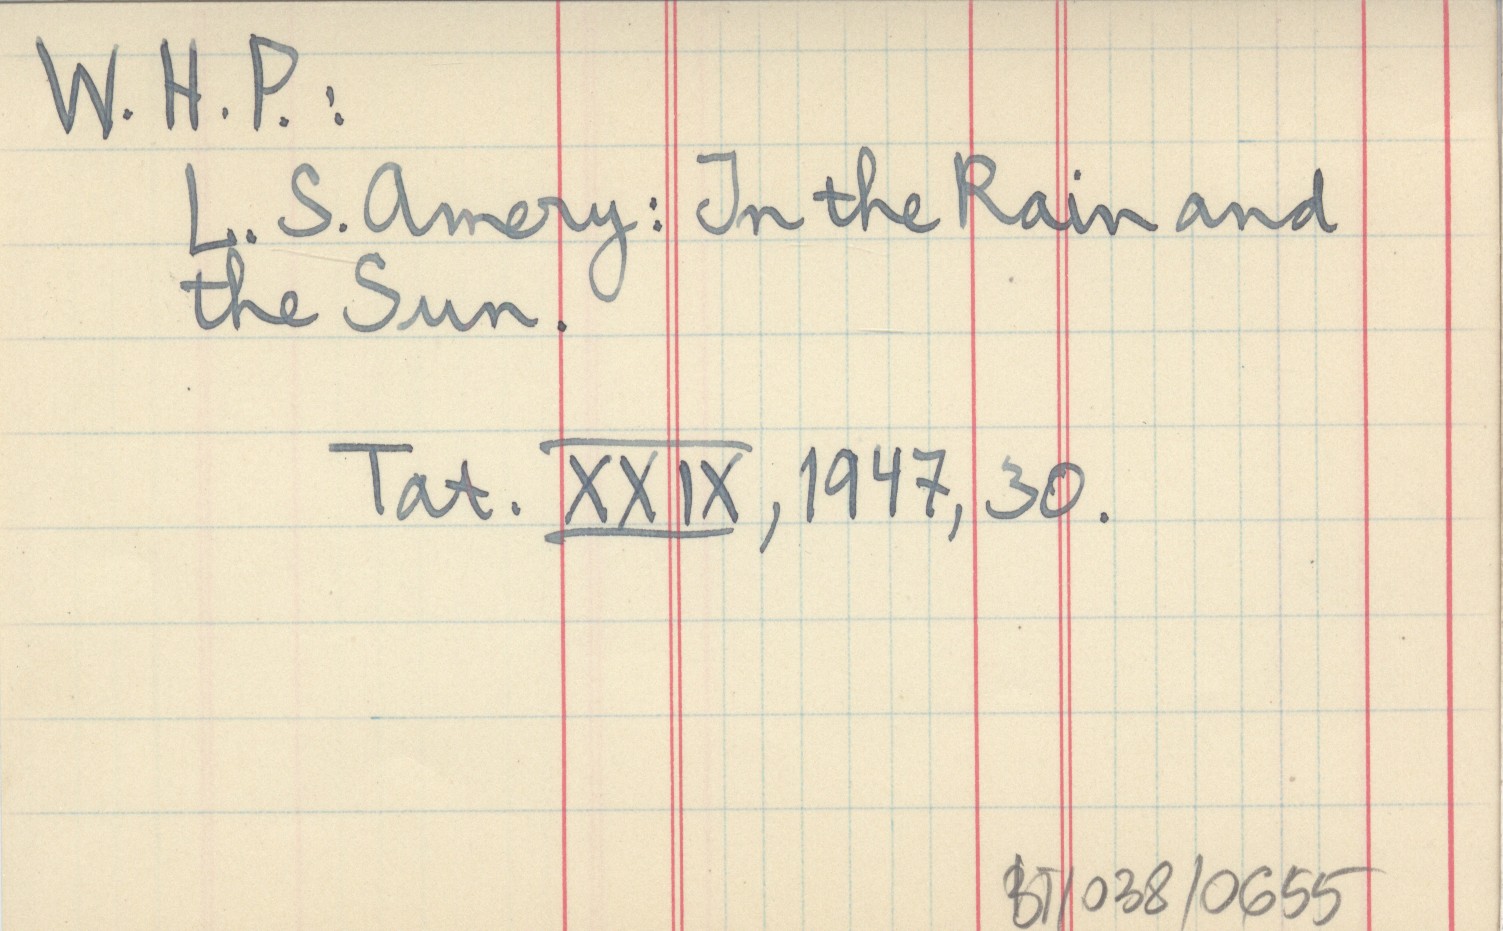 W. H. P.:
L. S. Amery: In the Rain and
the Sun.
Tat. XXIX, 1947, 30.
BT/038/0655